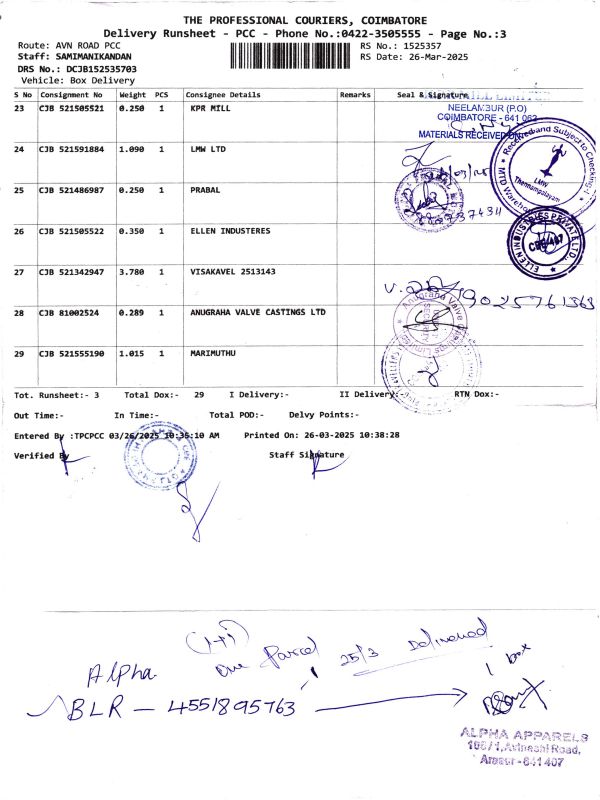 THE PROFESSIONAL COURIERS, COIMBATORE
Delivery Runsheet - PCC - Phone No.:0422-3505555 - Page No.:3
Route: AVN ROAD PCC
RS No.: 1525357
Staff: SAMIMANIKANDAN
RS Date: 26-Mar-2025
DRS No.: DCJB152535703
Vehicle: Box Delivery
S No Consignment No Weight PCS Consignee Details Remarks Seal & Signature
23 CJB 521505521 0.250 1 KPR MILL
NEELAMBUR (P.O)
COIMBATORE - 641 062
MATERIALS RECEIVED ON
24 CJB 521591884 1.090 1 LMW LTD
Received and Subject to Checking
LMW
Thennampalayam
25 CJB 521486987 0.250 1 PRABAL
26 CJB 521505522 0.350 1 ELLEN INDUSTERES
ELLEN INDUSTRIES PRIVATE LTD.
CBE-407
27 CJB 521342947 3.780 1 VISAKAVEL 2513143
9025761363
28 CJB 81002524 0.289 1 ANUGRAHA VALVE CASTINGS LTD
Anugraha Valve Castings Limited
SECURITY
29 CJB 521555190 1.015 1 MARIMUTHU
Tot. Runsheet:- 3 Total Dox:- 29 I Delivery:- II Delivery:- RTN Dox:-
Out Time:- In Time:- Total POD:- Delvy Points:-
Entered By :TPCPCC 03/26/2025 10:35:10 AM Printed On: 26-03-2025 10:38:28
Verified By Staff Signature
(1+1)
One Parcel 25/3 Delivered
Alpha
1 box
BLR - 4551895763
ALPHA APPARELS
106/1, Avinashi Road,
Arasur - 641 407